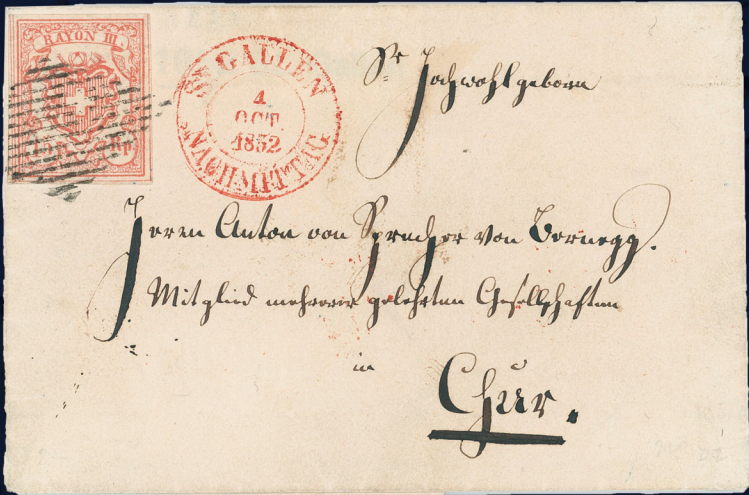 RAYON III.
15 Rp.
St GALLEN
4
OCT.
1852
NACHMITTAG
Sr Hochwohlgeborn
Herrn Anton von Sprecher von Bernegg.
Mitglied mehrerer gelehrten Gesellschaften
in
Chur.